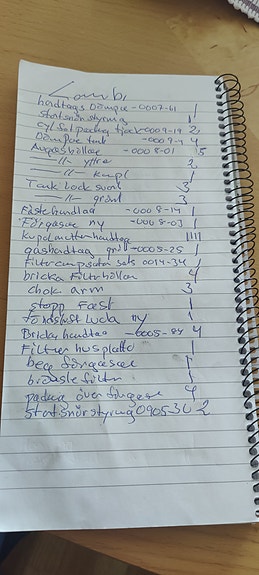 Combi
handtags Dämpie - 0007-61 1
startsnörstyrning 1
cyl fot packning tjock - 0009-19 2
Dämpare tank - 0009-9 4
Avgasbällar - 0008-01 5
—//— yttre 2
—//— kupl 1
Tank Lock svart 3
—//— grönt 3
Fäste handtag - 0008-14 1
Förgasare ny - 0008-03 1
Kupolmutter handtag 1111
gashandtag gnil - 0005-25 1
filter campsatsn sats 0014-34 1
bricka Filterhållar 4
chok arm 3
stopp Fast 1
Tändstift Lucka ny 1
Bricka handtag - 0005-84 4
Filter husplatta 1
beg förgasare 1
bränsle filtr 1
packing över förgasare 4
startsnörstyrning 0905 30 2